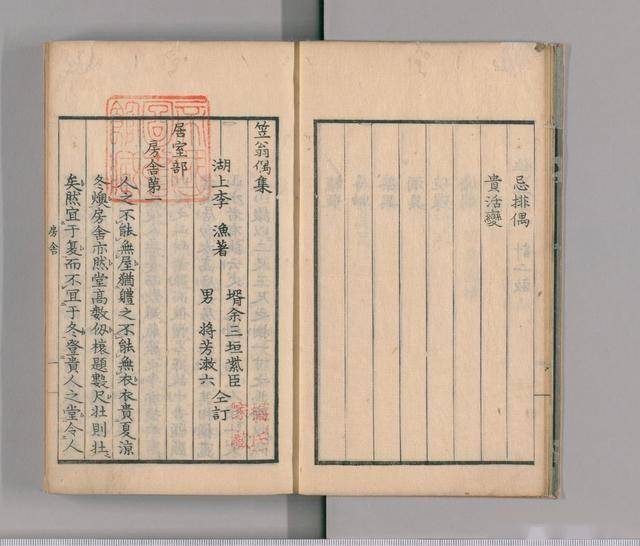 忌排偶
貴活變
笠翁偶集
湖上李漁著
壻余三垣䋲臣
男將芳漱六
仝訂
居室部
房舍第一
人之不能無屋猶體之不能無衣衣貴夏凉
冬燠房舍亦然堂高數仭榱題數尺壯則壯
矣然宜于夏而不冝于冬登貴人之堂令人
房舍
一